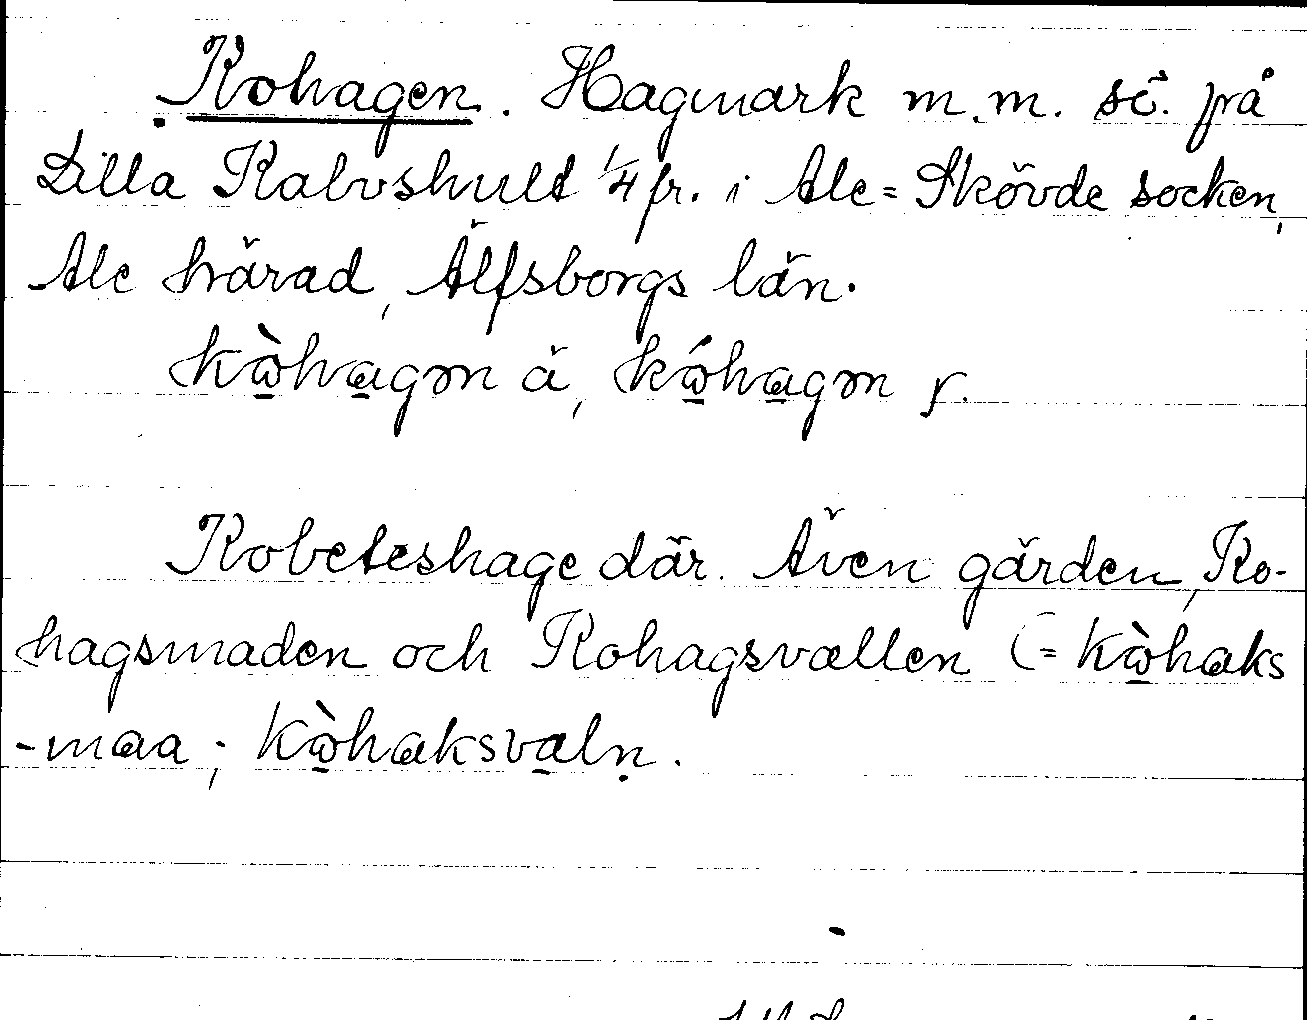 Kohagen. Hagmark m.m. sö. på
Lilla Kalvshult 1/4 fr. i Ale=Skövde socken,
Ale härad, Älfsborgs län.
kὼhagən ä, kώhagən r.
Kobeteshage där. Även gärden, Ko-
hagsmaden och Kohagsvallen (= kὼhaks
-maa; kὼhaksvaln̥.